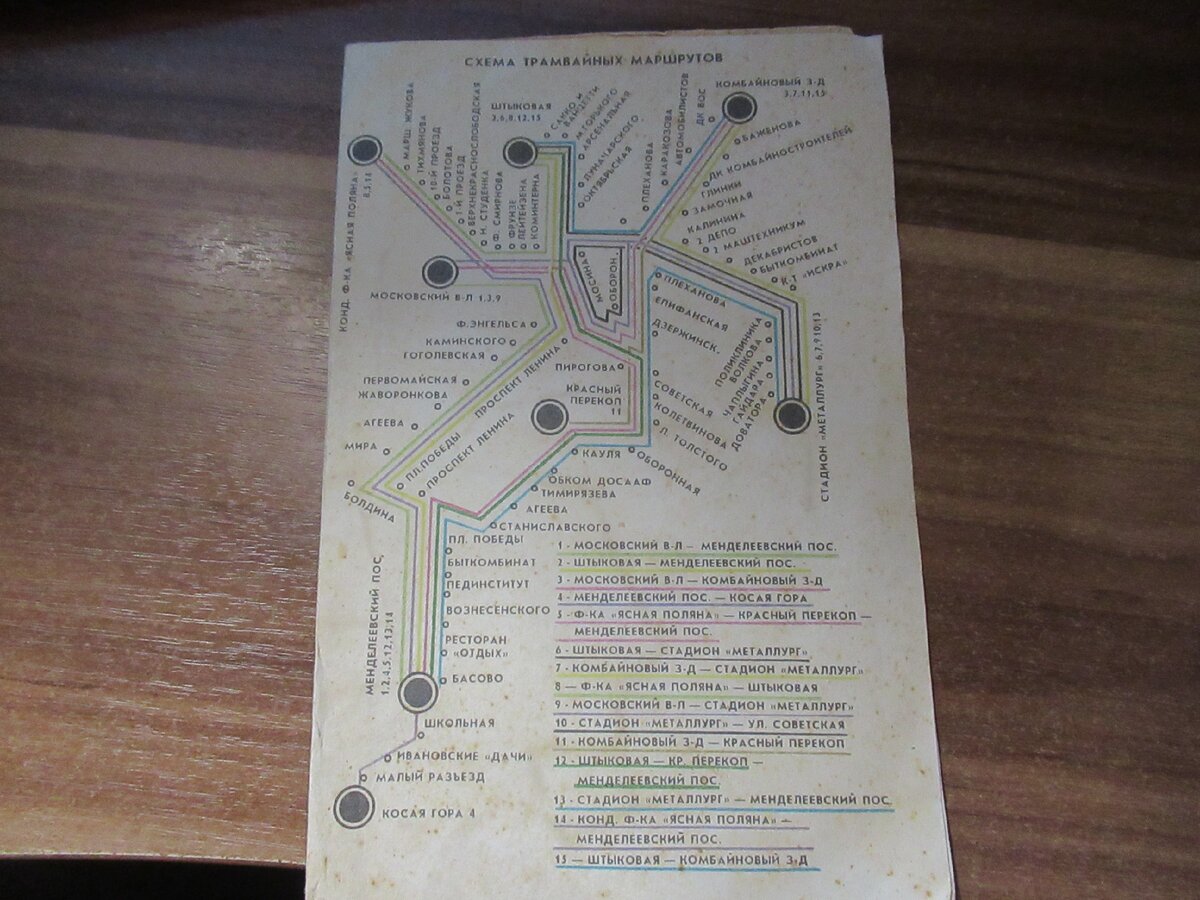 СХЕМА ТРАМВАЙНЫХ МАРШРУТОВ
КОМБАЙНОВЫЙ З-Д
3,7,11,15
ШТЫКОВАЯ
2,6,8,12,15
КОНД. Ф-КА «ЯСНАЯ ПОЛЯНА»
8,5,14
МАРШ. ЖУКОВА
ТИХМЯНОВА
10-Й ПРОЕЗД
БОЛОТОВА
1-Й ПРОЕЗД
ВЕРХНЕКРАСНОСЛОБОДСКАЯ
Н. СТУДЕНКА
Ф. СМИРНОВА
ФРУНЗЕ
ЛЕЙТЕЙЗЕНА
КОМИНТЕРНА
САККО И
ВАНЦЕТТИ
М. ГОРЬКОГО
АРСЕНАЛЬНАЯ
ЛУНАЧАРСКОГО
ОКТЯБРЬСКАЯ
ПЛЕХАНОВА
КАРАКОЗОВА
АВТОМОБИЛИСТОВ
ДК ВОС
БАЖЕНОВА
ДК КОМБАЙНОСТРОИТЕЛЕЙ
ГЛИНКИ
ЗАМОЧНАЯ
КАЛИНИНА
2 ДЕПО
2 МАШТЕХНИКУМ
ДЕКАБРИСТОВ
БЫТКОМБИНАТ
К-Т «ИСКРА»
МОСИНА
ОБОРОН.
МОСКОВСКИЙ В-Л 1,3,9
Ф. ЭНГЕЛЬСА
КАМИНСКОГО
ГОГОЛЕВСКАЯ
ПЕРВОМАЙСКАЯ
ЖАВОРОНКОВА
АГЕЕВА
МИРА
БОЛДИНА
ПРОСПЕКТ ЛЕНИНА
ПЛ. ПОБЕДЫ
ПРОСПЕКТ ЛЕНИНА
ПИРОГОВА
КРАСНЫЙ
ПЕРЕКОП
11
ПЛЕХАНОВА
ЕПИФАНСКАЯ
ДЗЕРЖИНСК.
СОВЕТСКАЯ
КОЛЕТВИНОВА
Л. ТОЛСТОГО
ОБОРОННАЯ
ПОЛИКЛИНИКА
ВОЛКОВА
ЧАПЛЫГИНА
ГАЙДАРА
ДОВАТОРА
СТАДИОН «МЕТАЛЛУРГ» 6,7,9,10,13
КАУЛЯ
ОБКОМ ДОСААФ
ТИМИРЯЗЕВА
АГЕЕВА
СТАНИСЛАВСКОГО
ПЛ. ПОБЕДЫ
БЫТКОМБИНАТ
ПЕДИНСТИТУТ
ВОЗНЕСЕНСКОГО
РЕСТОРАН
«ОТДЫХ»
БАСОВО
МЕНДЕЛЕЕВСКИЙ ПОС.
1,2,4,5,12,13,14
ШКОЛЬНАЯ
ИВАНОВСКИЕ «ДАЧИ»
МАЛЫЙ РАЗЪЕЗД
КОСАЯ ГОРА 4
1 - МОСКОВСКИЙ В-Л — МЕНДЕЛЕЕВСКИЙ ПОС.
2 - ШТЫКОВАЯ — МЕНДЕЛЕЕВСКИЙ ПОС.
3 - МОСКОВСКИЙ В-Л — КОМБАЙНОВЫЙ З-Д
4 - МЕНДЕЛЕЕВСКИЙ ПОС. — КОСАЯ ГОРА
5 - Ф-КА «ЯСНАЯ ПОЛЯНА» — КРАСНЫЙ ПЕРЕКОП —
МЕНДЕЛЕЕВСКИЙ ПОС.
6 - ШТЫКОВАЯ — СТАДИОН «МЕТАЛЛУРГ»
7 - КОМБАЙНОВЫЙ З-Д — СТАДИОН «МЕТАЛЛУРГ»
8 — Ф-КА «ЯСНАЯ ПОЛЯНА» — ШТЫКОВАЯ
9 - МОСКОВСКИЙ В-Л — СТАДИОН «МЕТАЛЛУРГ»
10 - СТАДИОН «МЕТАЛЛУРГ» — УЛ. СОВЕТСКАЯ
11 - КОМБАЙНОВЫЙ З-Д — КРАСНЫЙ ПЕРЕКОП
12 - ШТЫКОВАЯ — КР. ПЕРЕКОП —
МЕНДЕЛЕЕВСКИЙ ПОС.
13 - СТАДИОН «МЕТАЛЛУРГ» — МЕНДЕЛЕЕВСКИЙ ПОС.
14 - КОНД. Ф-КА «ЯСНАЯ ПОЛЯНА» —
МЕНДЕЛЕЕВСКИЙ ПОС.
15 — ШТЫКОВАЯ — КОМБАЙНОВЫЙ З-Д